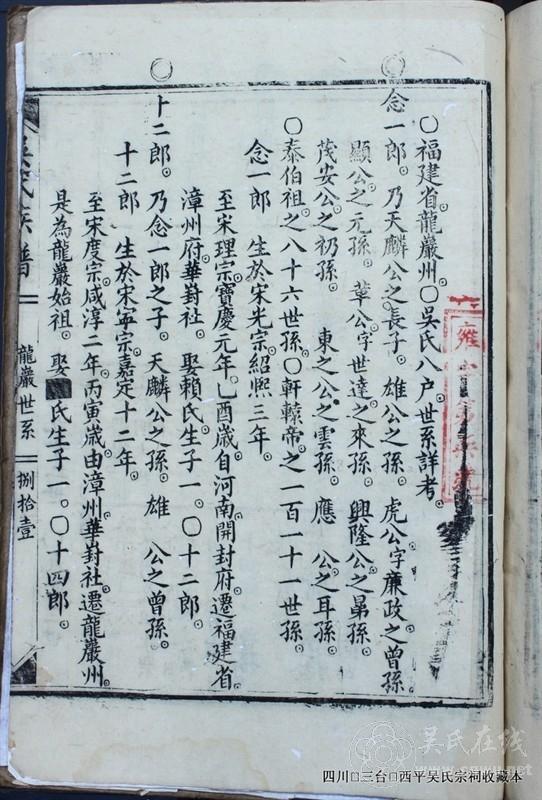 〇福建省龍巖州〇吳氏八户世系詳考
念一郎乃天麟公之長子雄公之孫虎公字廉政之曾孫
顯公之元孫 草公字世達之來孫興隆公之晜孫
茂安公之礽孫 東之公之雲孫 應公之耳孫
〇泰伯祖之八十六世孫〇軒轅帝之一百一十一世孫
念一郎 生於宋光宗紹熙三年
至宋理宗寶慶元年乙酉歲自河南開封府遷福建省
漳州府華葑社娶賴氏生子一〇十二郎
十二郎乃念一郎之子天麟公之孫雄公之曾孫
十二郎 生於宋寧宗嘉定十二年
至宋度宗咸淳二年丙寅歲由漳州華葑社遷龍巖州
是為龍巖始祖娶氏生子一〇十四郎
吳氏族譜
龍巖世系
捌拾壹
吴氏在线
www.cnwu.net
四川□三台□西平吴氏宗祠收藏本